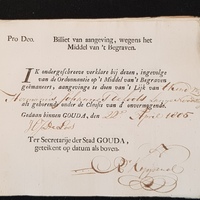 Pro Deo. Billiet van aangeving, wegens het
Middel van 't Begraven.
IK ondergeschreve verklare bij dezen, ingevolge
van de Ordonnantie op 't Middel van 't Begraven
geëmaneert, aangevinge te doen van 't Lijk van
Johannes
en gehorende onder de Classis van d'onvermogende.
Gedaan binnen GOUDA, den 22e April 1805
Ter Secretarije der Stad GOUDA,
geteikent op datum als boven